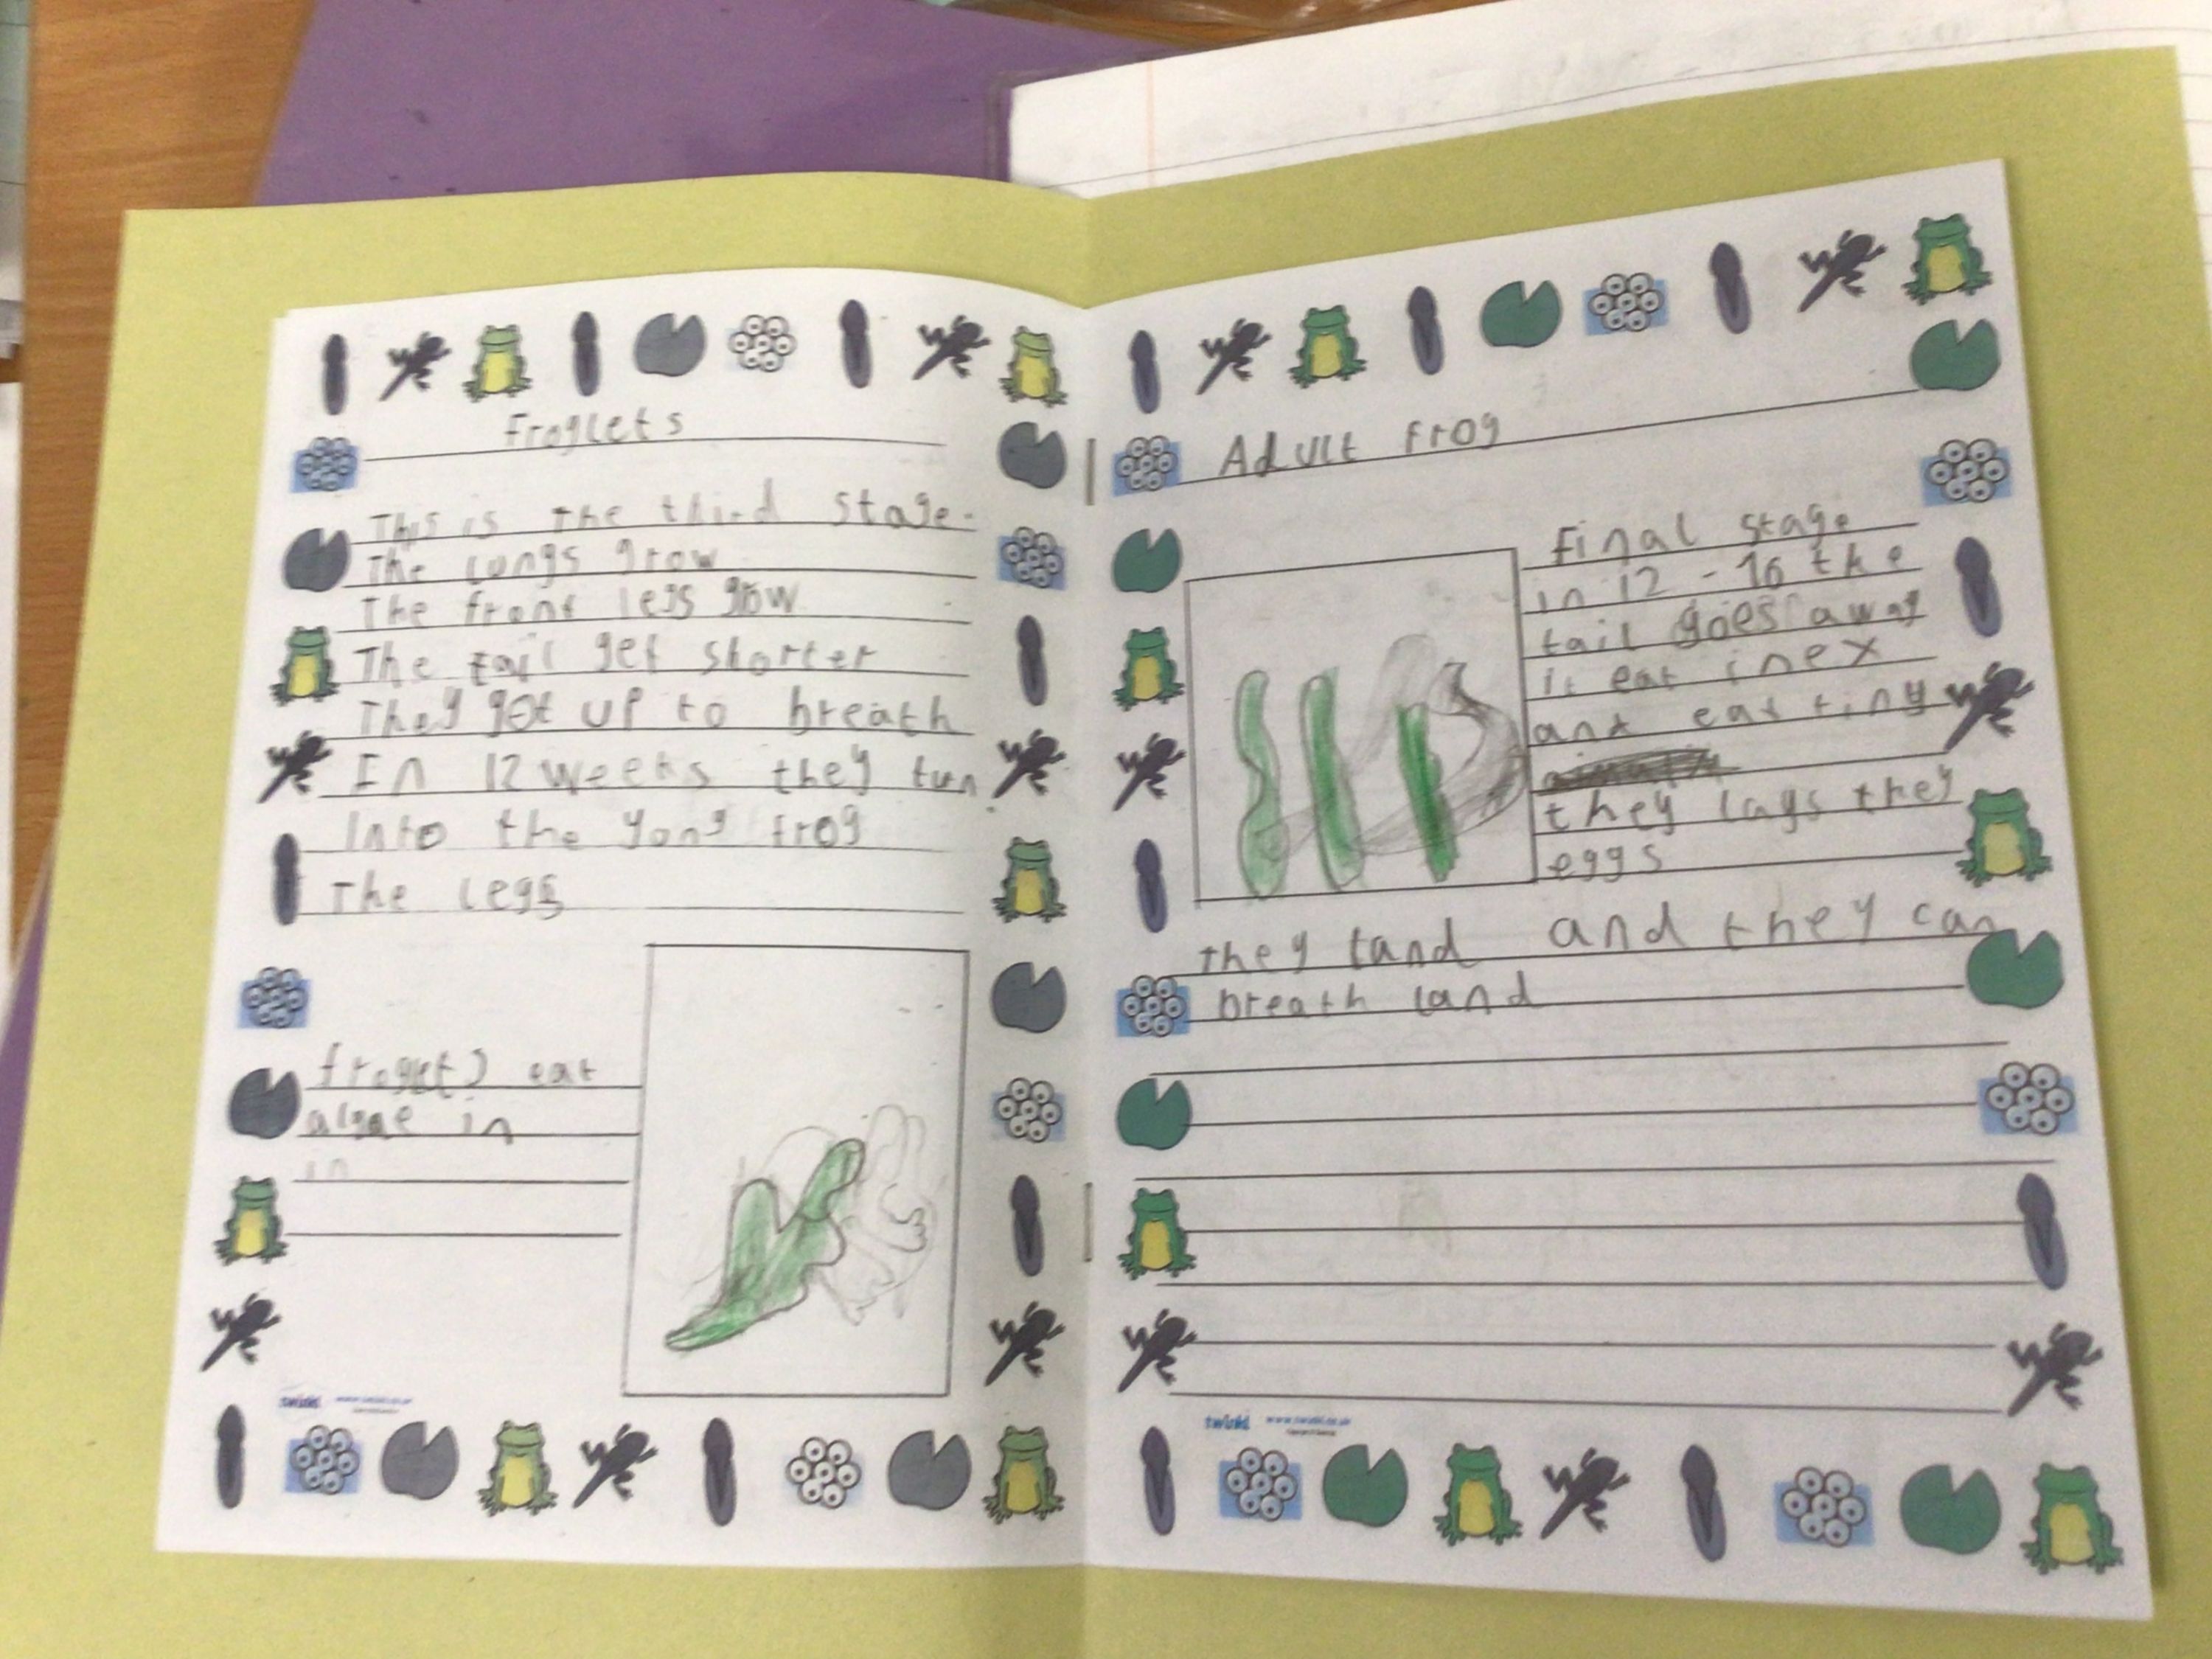 Froglets
This is the third stage.
The lungs grow
The front legs grow
The tail get shorter
They got up to breath
In 12 weeks they tun
Into the yong frog
The legs
froglets eat
algae in
in
twinkl www.twinkl.co.uk
Adult frog
final stage
in 12-16 the
tail goes away
it eat inex
and eat tiny
they lays they
eggs
they land and they can
breath land
twinkl www.twinkl.co.uk